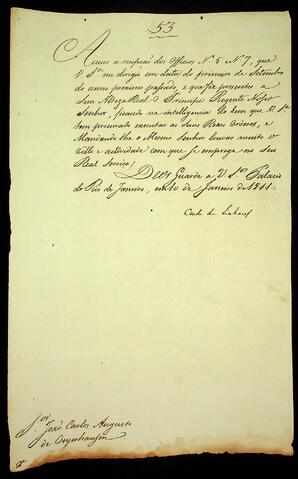 53
Accuso a recepção dos Officios Nº 5 e Nº 7, que
V. Sª me dirigio em data do primeiro de Setembro
do anno proximo passado, e que fiz presentes a
Sua Alteza Real o Principe Regente Nosso
Senhor, ficando na intelligencia do bem que V. Sª
tem procurado executar as Suas Reaes Ordens, e
Mandando-lhe o Mesmo Senhor louvar muito o
zello e actividade com que se emprega no seu
Real Serviço.
Deos Guarde a V. Sª Palacio
do Rio de Janeiro, em de Janeiro de 1811.
Conde de Linhares
Snr. João Carlos Augusto
de Oeynhausen